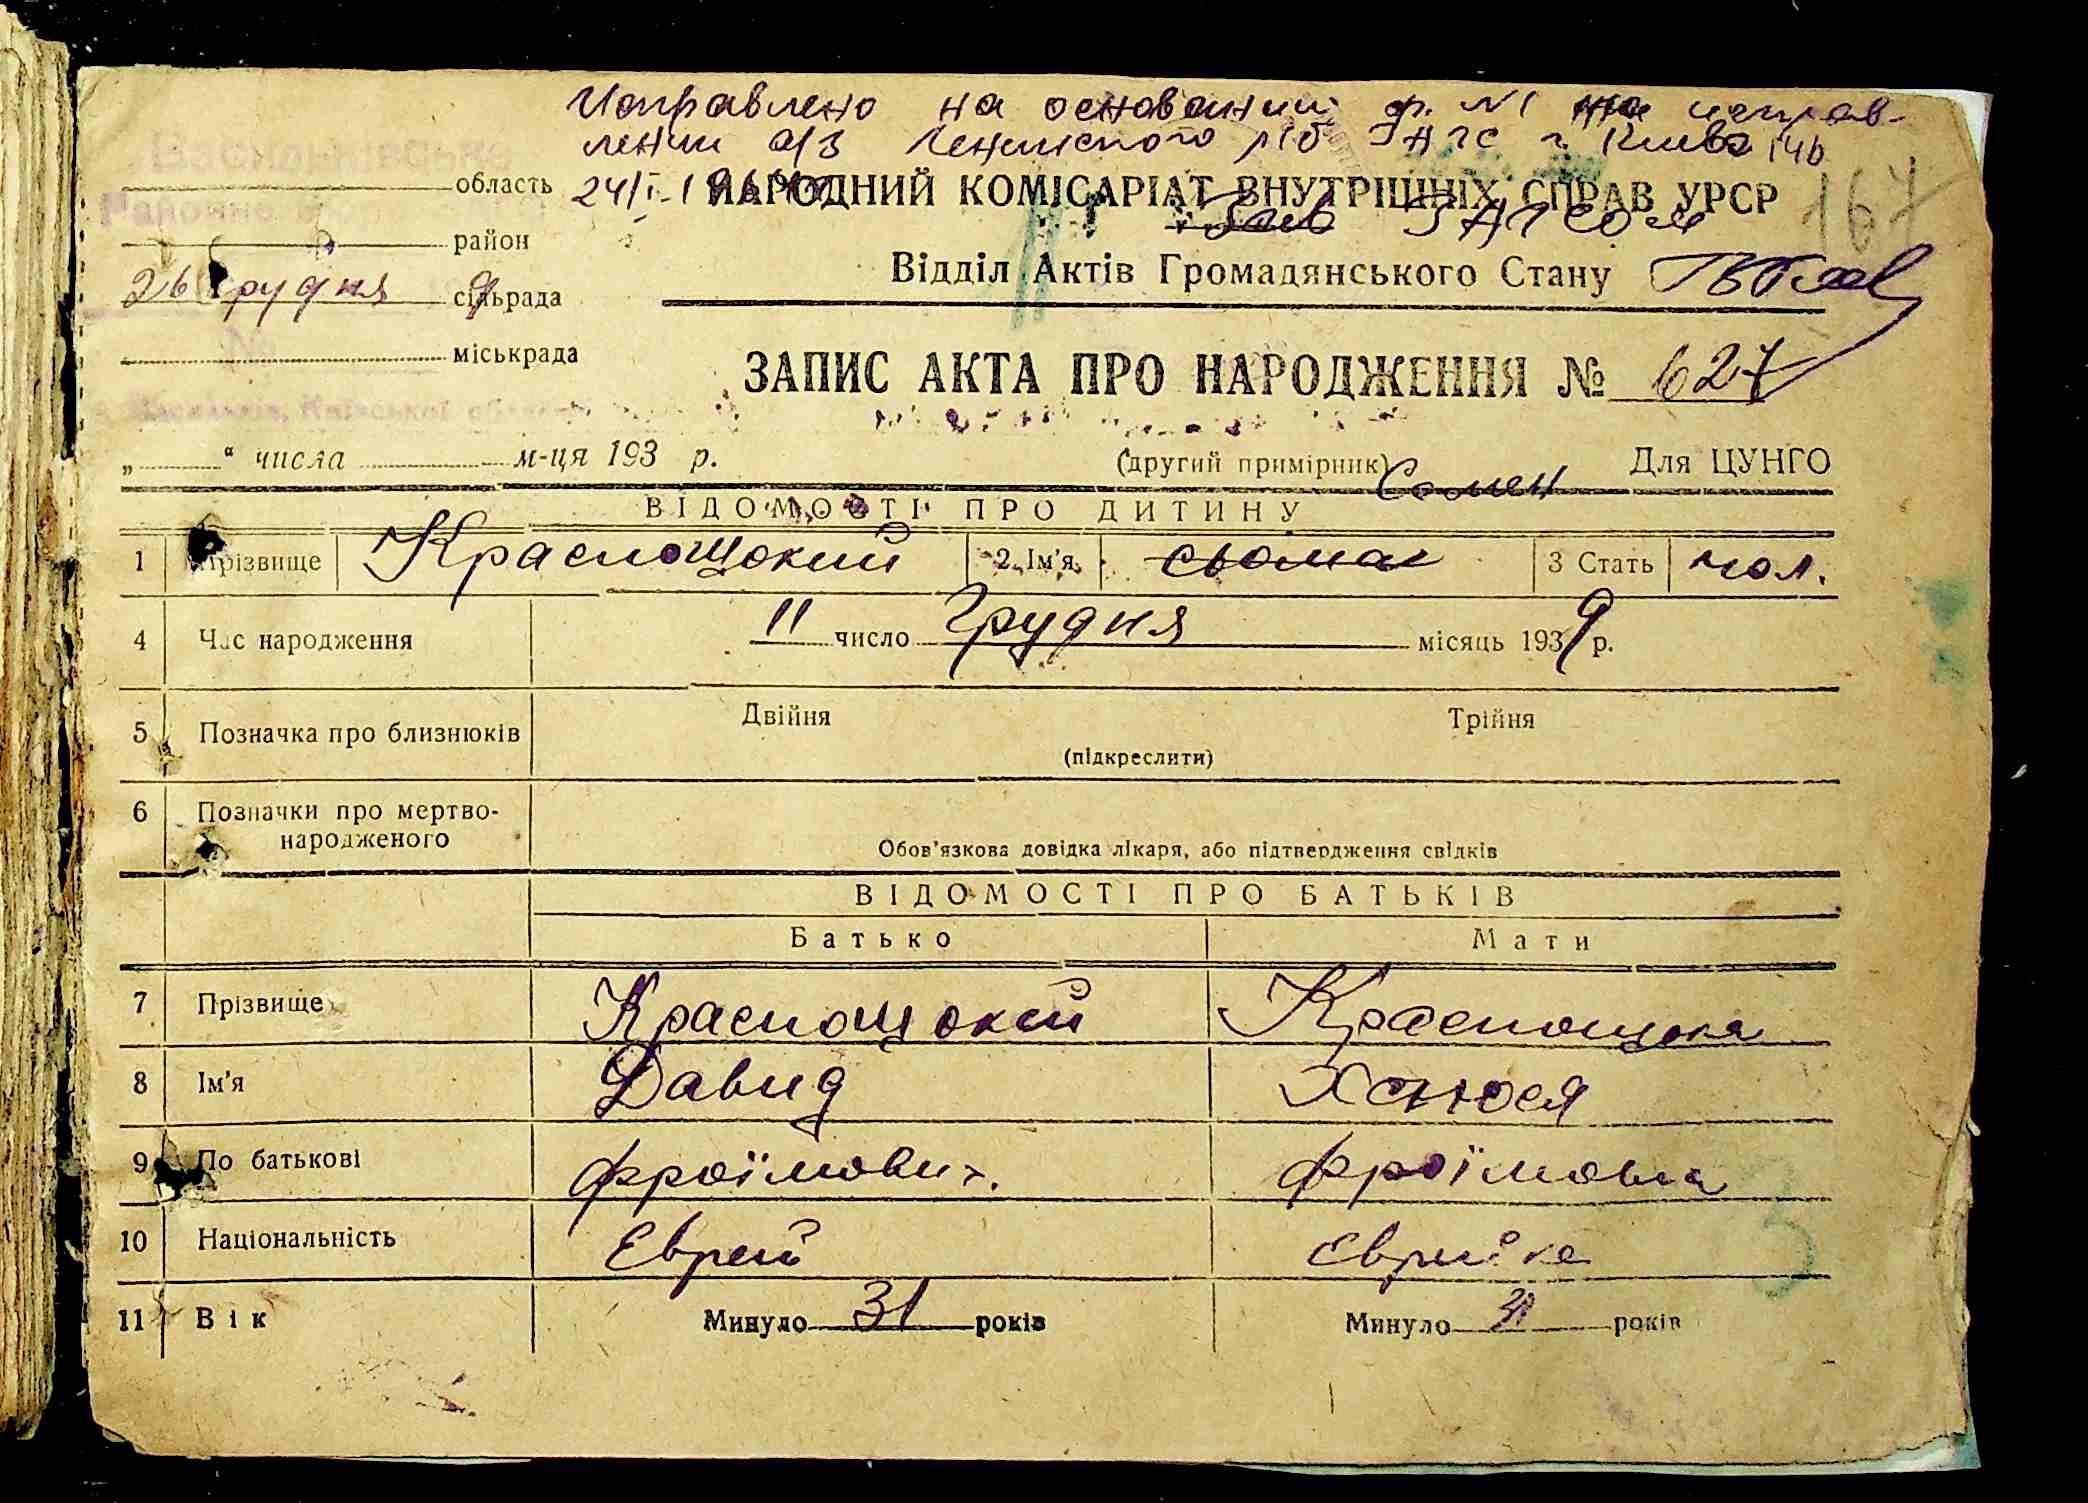 Исправлено на основании ф. N1 на исправ-
лении а/з Ленинского р/б ЗАГС г. Киева
Васильківське
область 24/I
НАРОДНИЙ КОМІСАРІАТ ВНУТРІШНІХ СПРАВ УРСР
167
Районне
район
Зав ЗАГСом
Відділ Актів Громадянського Стану
26 Грудня 9
сільрада
№
міськрада
ЗАПИС АКТА ПРО НАРОДЖЕННЯ № 627
Васильків, Київської
„ “ числа м-ця 193 р.
(другий примірник)
Семен
Для ЦУНГО
ВІДОМОСТІ ПРО ДИТИНУ
1 Прізвище Краснощокий 2. Ім'я сьома 3 Стать чол.
4 Час народження 11 число Грудня місяць 1939 р.
5 Позначка про близнюків Двійня Трійня
(підкреслити)
6 Позначки про мертво-
народженого
Обов'язкова довідка лікаря, або підтвердження свідків
ВІДОМОСТІ ПРО БАТЬКІВ
Батько Мати
7 Прізвище Краснощокий Краснощока
8 Ім'я Давид Хснюся
9 По батькові Фроїмович. Фроїмовна
10 Національність Еврей Еврейка
11 Вік Минуло 31 років Минуло років